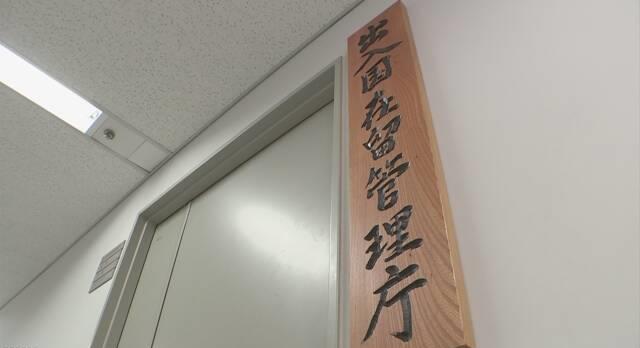 出入国在留管理庁